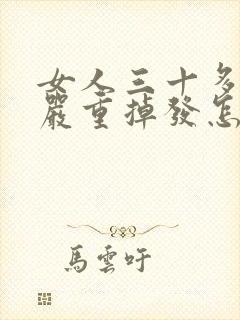 女人三十多
嚴重掉發怎
馬雲吁